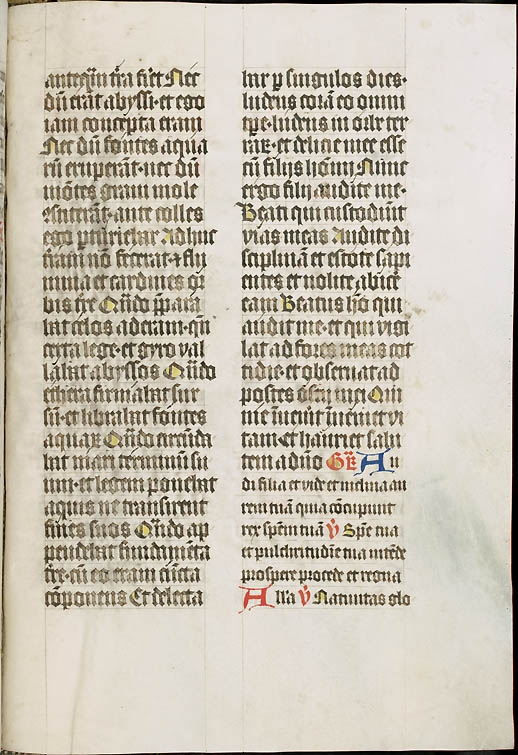 anteq̃m tr̃a fie͂t Nec
dũ erãt abyssi · et ego
iam concepta eram
Nec dũ fontes aqua
rũ eruperãt · nec dũ
mõtes graui mole
ꝯstiterãt · ante colles
ego ꝑturiebar Adhuc
tr̃am nõ fecerat · ⁊ flu
mina et cardines or
bis tr̃e Qñdo p̃para
bat celos aderam · qñ
certa lege · et gyro val
labat abyssos Qñdo
ethera firmabat sur
sũ · et librabat fontes
aquaꝝ Qñdo circũda
bat mari terminũ su
um · et legem ponebat
aquis ne transirent
fines suos Qñdo ap
pendebat fundamẽta
tr̃e · cũ eo eram cũcta
cõponens Et delecta
bar ꝑ singulos dies ·
ludens corã eo omni
tꝑe · ludens in orbe ter
raꝝ · et delicie mee esse
cũ filijs hoĩm Nunc
ergo filij audite me ·
Beati qui custodiũt
vias meas Audite di
sciplinam et estote sapi
entes et nolite abicẽ
eam Beatus hõ qui
audit me · et qui vigi
lat ad fores meas cot
tidie · et obseruat ad
postes ostij mei Qui
me inuenit̃ inueniet vi
tam · et hauriet salu
tem a dño Gr̃ Au
di filia et vide et inclina au
rem tuam quia concupiuit
rex spẽm tuã ℣ Spẽ tua
et pulchritudine tua intẽde
prospere procede et regna
All'a ℣ Natiuitas glo